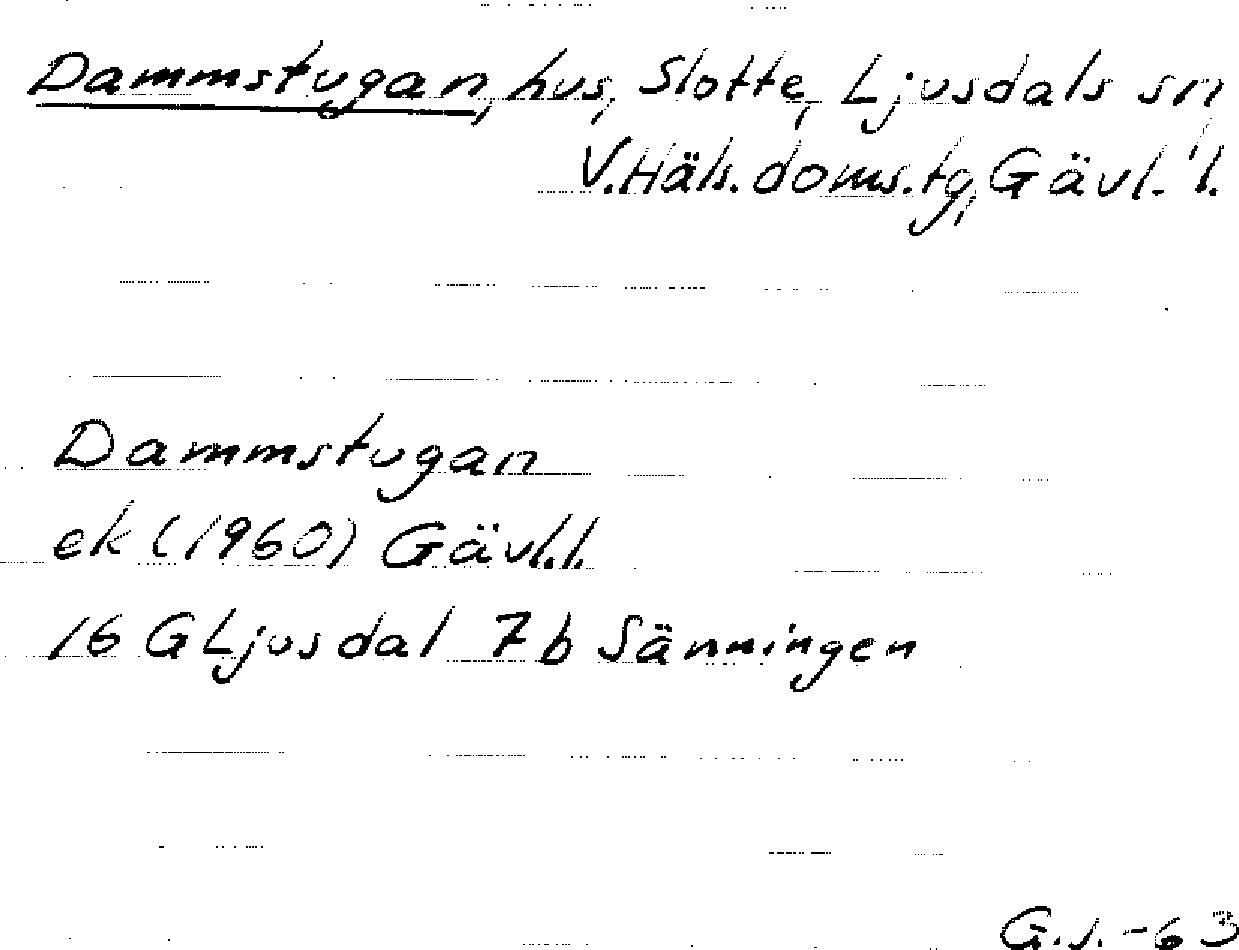 Dammstugan, hus, Slotte, Ljusdals sn,
V.Häls.doms.tg, Gävl. l.
Dammstugan
ek (1960) Gävl.l.
16 G Ljusdal 7b Sänningen
G.s.-63